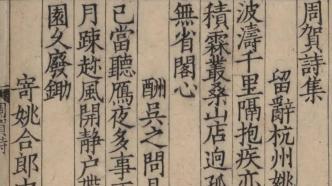 周賀詩集
留辭杭州姚
波濤千里隔抱疾亦
積霖叢桑山店迥孤
無省閣心
酬吳之問見
已當聽鴈夜多事
月踈趂風開静户帶
園久廢鋤
寄姚合郎